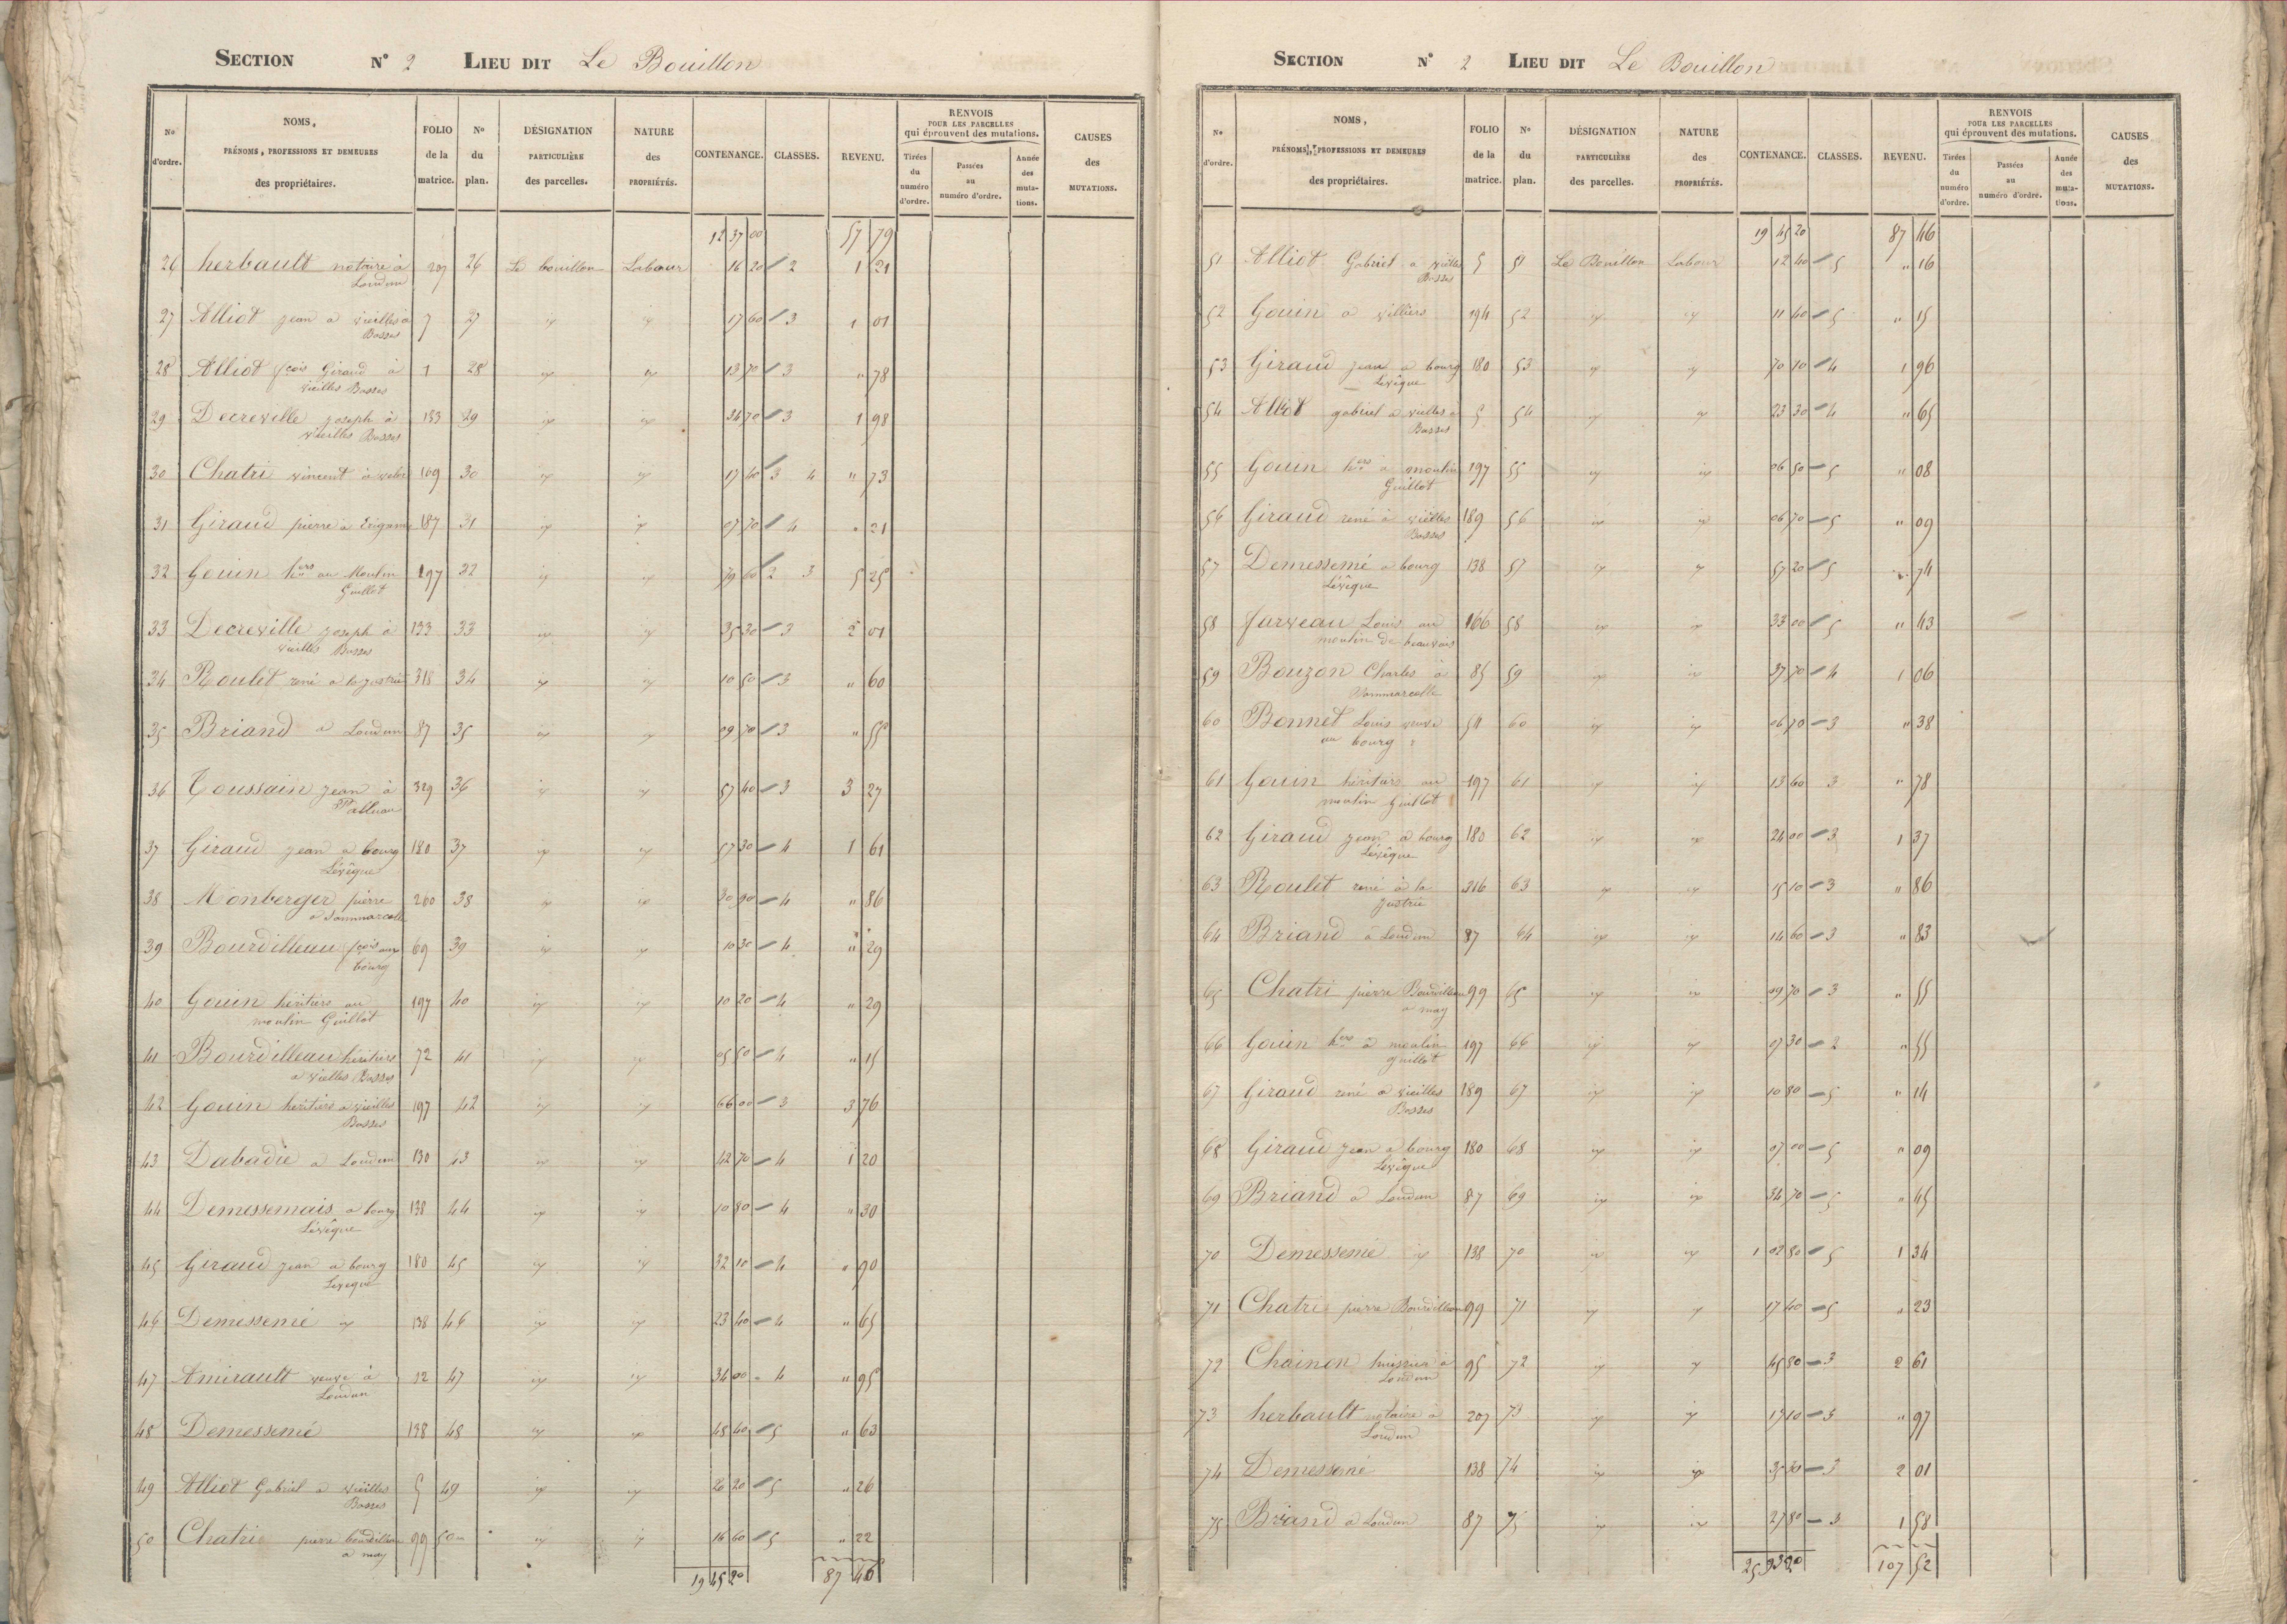 SECTION N° 2 LIEU DIT Le Bouillon
N° d'ordre. NOMS, PRÉNOMS, PROFESSIONS ET DEMEURES des propriétaires. FOLIO de la matrice. N° du plan. DÉSIGNATION PARTICULIÈRE des parcelles. NATURE des PROPRIÉTÉS. CONTENANCE. CLASSES. REVENU. RENVOIS POUR LES PARCELLES qui éprouvent des mutations. Tirées du numéro d'ordre. Passées au numéro d'ordre. Année des mutations. CAUSES des MUTATIONS.
12 37 00 57 79
26 herbault notaire à Loudun 207 26 Le bouillon Labour 16 20 2 1 21
27 Alliot jean a vieilles Bosses 7 27 id id 17 60 3 1 01
28 Alliot fçois Giraud à vieilles Bosses 1 28 id id 13 70 3 " 78
29 Decreville joseph à vieilles Bosses 133 29 id id 34 70 3 1 98
30 Chatri vincent à 109 30 id id 17 40 3 4 " 73
31 Giraud pierre a 187 31 id id 07 70 4 " 21
32 Gouin hers au Moulin Guillot 197 32 id id 79 60 2 3 5 25
33 Decreville joseph à vieilles Bosses 133 33 id id 35 30 3 2 01
34 Roulet rené a la justrie 318 34 id id 10 50 3 " 60
35 Briand a Loudun 87 35 id id 09 70 3 " 55
36 Toussain jean à 329 36 id id 57 40 3 3 27
37 Giraud jean a bourg Lévêque 180 37 id id 57 30 4 1 61
38 Monberger pierre a Sammarcolle 260 38 id id 30 90 4 " 86
39 Bourdilleau fçois au bourg 69 39 id id 10 30 4 " 29
40 Gouin héritiers au moulin Guillot 197 40 id id 10 20 4 " 29
41 Bourdilleau héritiers a vielles Bosses 72 41 id id 05 50 4 " 15
42 Gouin heritiers a vieilles Bosses 197 42 id id 66 00 3 3 76
43 Dabadie a Loudun 130 43 id id 42 70 4 1 20
44 Demessemais a bourg Lévêque 138 44 id id 10 80 4 " 30
45 Giraud jean a bourg Leveque 180 45 id id 32 10 4 " 90
46 Demessemé id 138 46 id id 23 40 4 " 65
47 Amirault veuve à Loudun 12 47 id id 34 00 4 " 95
48 Demessemé 138 48 id id 48 40 5 " 63
49 Alliot Gabriel a vieilles Bosses 5 49 id id 20 20 5 " 26
50 Chatri pierre bourdilleau a may 99 50 id id 16 60 5 " 22
19 45 20 87 46
SECTION N° 2 LIEU DIT Le Bouillon
N° d'ordre. NOMS, PRÉNOMS, PROFESSIONS ET DEMEURES des propriétaires. FOLIO de la matrice. N° du plan. DÉSIGNATION PARTICULIÈRE des parcelles. NATURE des PROPRIÉTÉS. CONTENANCE. CLASSES. REVENU. RENVOIS POUR LES PARCELLES qui éprouvent des mutations. Tirées du numéro d'ordre. Passées au numéro d'ordre. Année des mutations. CAUSES des MUTATIONS.
19 45 20 87 46
51 Alliot Gabriel a vieilles Bosses 5 51 Le Bouillon Labour 12 40 5 " 16
52 Gouin a villiers 194 52 id id 11 40 5 " 15
53 Giraud jean a bourg Levêque 180 53 id id 70 10 4 1 96
54 Alliot gabriel a vielles Bosses 5 54 id id 23 30 4 " 65
55 Gouin hers a moulin Guillot 197 55 id id 06 50 5 " 08
56 Giraud rené à vieilles Bosses 189 56 id id 06 70 5 " 09
57 Demessemé a bourg Lévêque 138 57 id id 57 20 5 " 74
58 Jurveau Louis au moulin de beauvais 166 58 id id 33 00 5 " 43
59 Bouzon Charles à Sammarcolle 85 59 id id 37 70 4 1 06
60 Bonnet Louis veuve au bourg 54 60 id id 06 70 3 " 38
61 Gouin héritiers au moulin Guillot 197 61 id id 13 60 3 " 78
62 Giraud jean a bourg Lévêque 180 62 id id 24 00 3 1 37
63 Roulet rené à la justrie 316 63 id id 15 10 3 " 86
64 Briand à Loudun 87 64 id id 14 60 3 " 83
65 Chatri pierre Bourdilleau a may 99 65 id id 09 70 3 " 55
66 Gouin hers à moulin guillot 197 66 id id 07 30 2 " 55
67 Giraud rené a vieilles Bosses 189 67 id id 10 80 5 " 14
68 Giraud jean a bourg Lévêque 180 68 id id 07 00 5 " 09
69 Briand a Loudun 87 69 id id 34 70 5 " 45
70 Demessemé id 138 70 id id 1 02 80 5 1 34
71 Chatri pierre Bourdilleau 99 71 id id 17 40 5 " 23
72 Chainon huissier à Loudun 95 72 id id 45 80 3 2 61
73 herbault notaire à Loudun 207 73 id id 17 10 3 " 97
74 Demessemé 138 74 id id 35 30 3 2 01
75 Briand a Loudun 87 75 id id 27 80 3 1 58
25 93 20 107 52